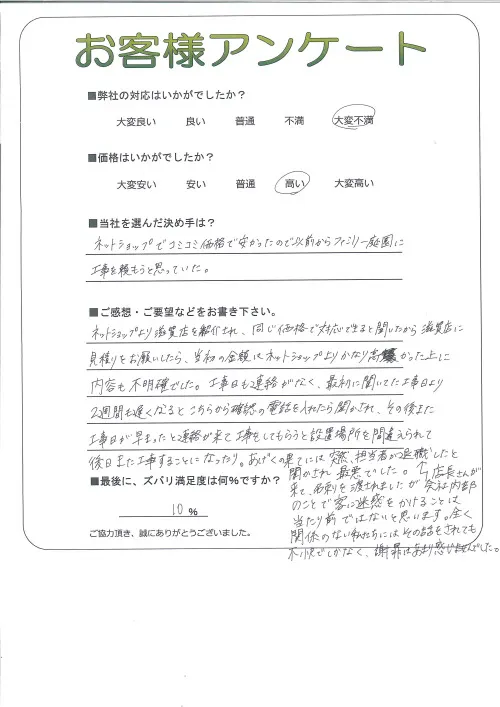 お客様アンケート
■弊社の対応はいかがでしたか？
大変良い 良い 普通 不満 大変不満
■価格はいかがでしたか？
大変安い 安い 普通 高い 大変高い
■当社を選んだ決め手は？
ネットショップでコミコミ価格で安かったので以前からファミリー庭園に
工事を頼もうと思っていた。
■ご感想・ご要望などをお書き下さい。
ネットショップより滋賀店を紹介され、同じ価格で対応できると聞いたから滋賀店に
見積りをお願いしたら、当初の金額はネットショップよりかなり高かった上に
内容も不明確でした。工事日も連絡がなく、最初に聞いてた工事日より
2週間も遅くなるとこちらから確認の電話を入れたら聞かされ、その後また
工事日が早まったと連絡が来て工事をしてもらうと設置場所を間違えられて
後日また工事することになったり。あげくの果てには突然、担当者が退職したと
聞かされ最悪でした。店長さんが
■最後に、ズバリ満足度は何％ですか？
来て、名刺を渡されましたが会社内部
のことで客に迷惑をかけることは
10 %
当たり前ではないと思います。全く
ご協力頂き、誠にありがとうございました。
関係のない私たちにはその話をされても
不快でしかなく、謝罪はあまり感じませんでした。